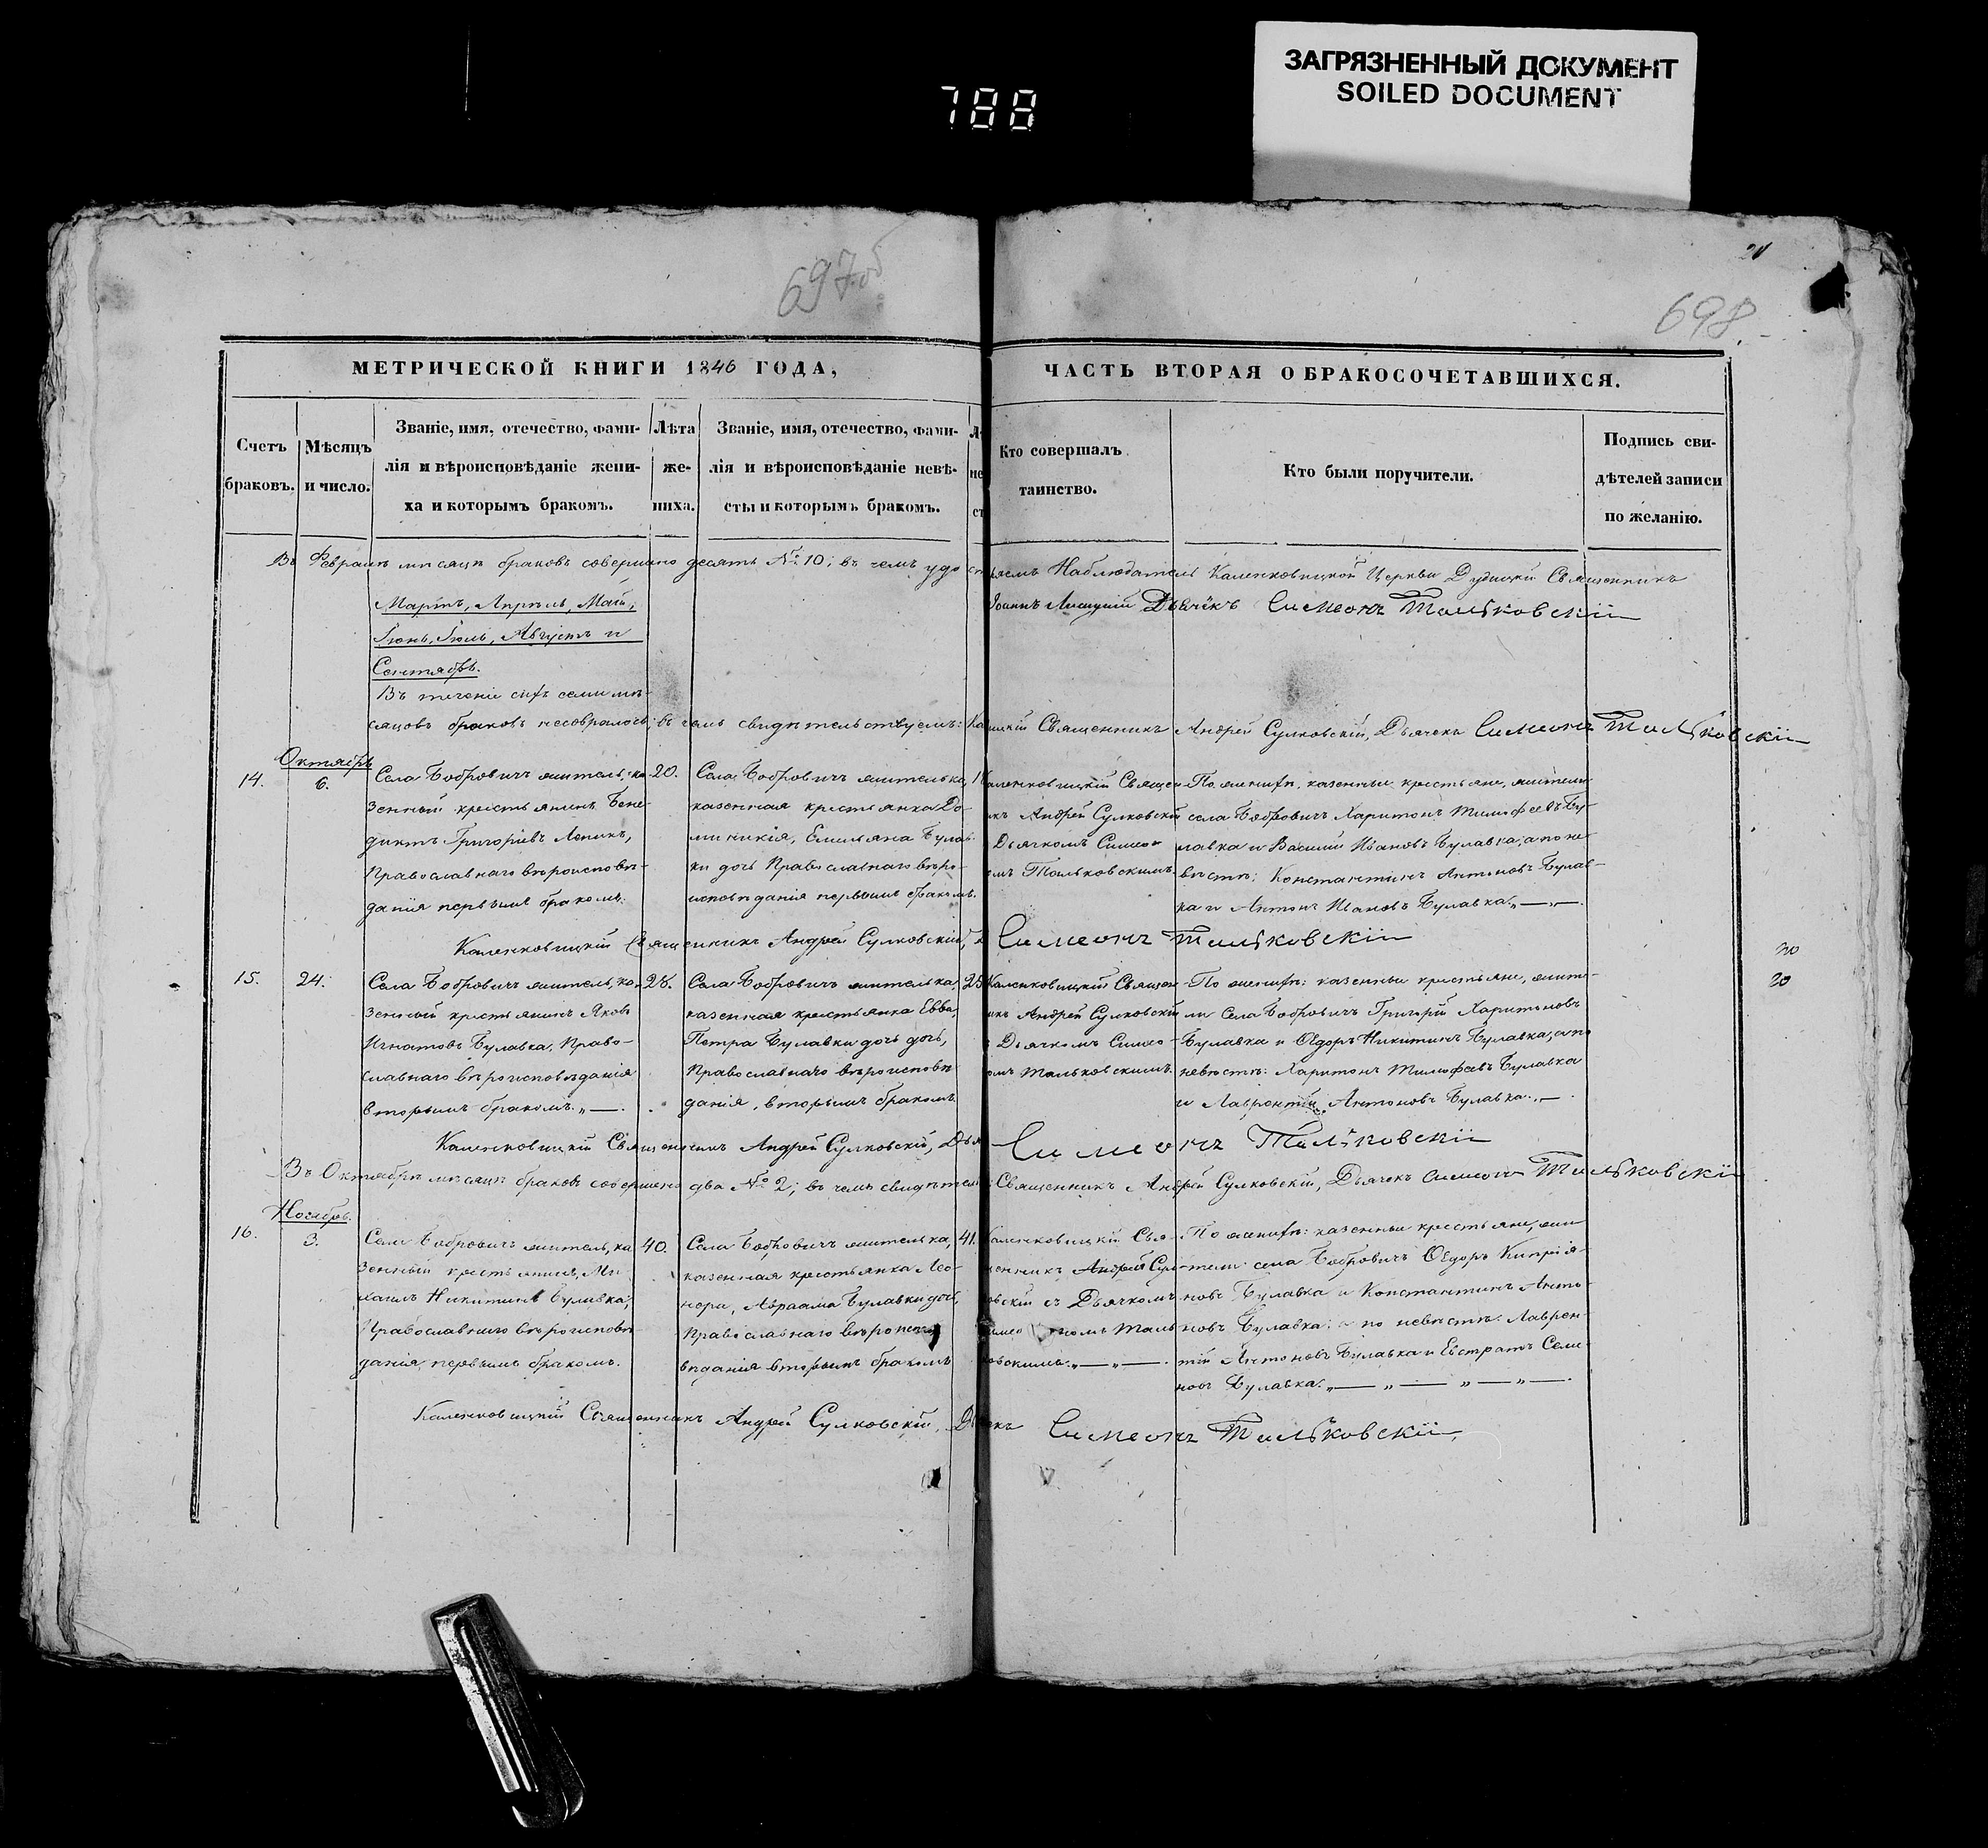 ЗАГРЯЗНЕННЫЙ ДОКУМЕНТ
SOILED DOCUMENT
788
697об
698
МЕТРИЧЕСКОЙ КНИГИ 1846 ГОДА,
ЧАСТЬ ВТОРАЯ О БРАКОСОЧЕТАВШИХСЯ.
Счетъ браковъ.
Мѣсяцъ и число.
Званіе, имя, отечество, фами-
лія и вѣроисповѣданіе жени-
ха и которымъ бракомъ.
Лѣта
же-
ниха.
Званіе, имя, отечество, фами-
лія и вѣроисповѣданіе невѣ-
сты и которымъ бракомъ.
Кто совершалъ
таинство.
Кто были поручители.
Подпись сви-
дѣтелей записи
по желанію.
Въ Февралѣ мѣсяцѣ браковъ совершено десять № 10; въ чемъ удо
Наблюдатель Каленковицкой Церкви Священникъ
Мартъ, Апрѣль, Май,
Іоаннъ Дьячекъ Симеонъ Тальковскій
Іюнь, Іюль, Августъ и
Сентябрь.
Въ теченіе сихъ семи мѣ-
сяцовъ браковъ несовралось; въ чемъ свидѣтельствуемъ: Священникъ Андрей Сулковскій, Дьячекъ Симеонъ Тальковскій
Октябрь
14.
6.
Села Бобровичъ житель, ка-
зенный крестьянинъ Бене-
диктъ Григоріевъ Лопикъ,
Православнаго вѣроисповѣ-
данія первымъ бракомъ.
20.
Села Бобровичъ жителька,
казенная крестьянка До-
миникія, Емильяна Булав-
ки дочь Православнаго вѣро-
исповѣданія первымъ бракомъ.
Каленковицкій Священ-
икъ Андрей Сулковскій
Дьячкомъ Симео-
омъ Тальковскимъ.
По женихѣ, казенные крестьяне, жители
села Бобровичъ Харитонъ Тимофеевъ Бу-
лавка и Василій Ивановъ Булавка; а по не-
вѣстѣ: Константинъ Антоновъ Булав-
ка и Антонъ Ивановъ Булавка „ — „ — .
Каленковицкій Священникъ Андрей Сулковскій, Симеонъ Тальковскій
20
15.
24.
Села Бобровичъ житель, ка-
зенный крестьянинъ Яковъ
Игнатовъ Булавка, Право-
славнаго вѣроисповѣданія
вторымъ бракомъ. „ — .
28.
Села Бобровичъ жителька,
казенная крестьянка Евва,
Петра Булавки дочь дочь,
Православнаго вѣроисповѣ
данія, вторымъ бракомъ
25
Каленковицкій Священ
икъ Андрей Сулковскій
Дьячкомъ Симео-
омъ Тальковскимъ.
По женихѣ: казенные крестьяне, жите-
ли села Бобровичъ Григорій Харитоновъ
Булавка и Ѳедоръ Никитинъ Булавка, а по
невѣстѣ: Харитонъ Тимофеевъ Булавка
и Лаврентій Антоновъ Булавка „ — .
20
Каленковицкій Священникъ Андрей Сулковскій, Дья Симеонъ Тальковскій
Въ Октябрѣ мѣсяцѣ браковъ совершено два № 2; въ чемъ свидѣтел Священникъ Андрей Сулковскій, Дьячекъ Симеонъ Тальковскій
Ноябрь.
16.
3.
Села Бобровичъ житель, ка
зенный крестьянинъ, Ми
хаилъ Никитинъ Булавка,
Православнаго вѣроисповѣ
данія, первымъ бракомъ.
40.
Села Бобровичъ жителька,
казенная крестьянка Лео-
нора, Авраама Булавки дочь,
Православнаго вѣроиспо
вѣданія вторымъ бракомъ
41.
Каленковицкій Свя-
щенникъ Андрей Сул-
ковскій съ Дьячкомъ
Симео номъ Таль
ковскимъ. „ — „ — .
По женихѣ: казенные крестьяне, жи
тели села Бобровичъ Ѳедоръ Кипрія-
новъ Булавка и Константинъ Анто-
новъ Булавка: а по невѣстѣ. Лаврен-
тій Антоновъ Булавка и Евстратъ Семе-
новъ Булавка. „ — „ — „ — „ — .
Каленковицкій Священникъ Андрей Сулковскій, Дьячекъ Симеонъ Тальковскій